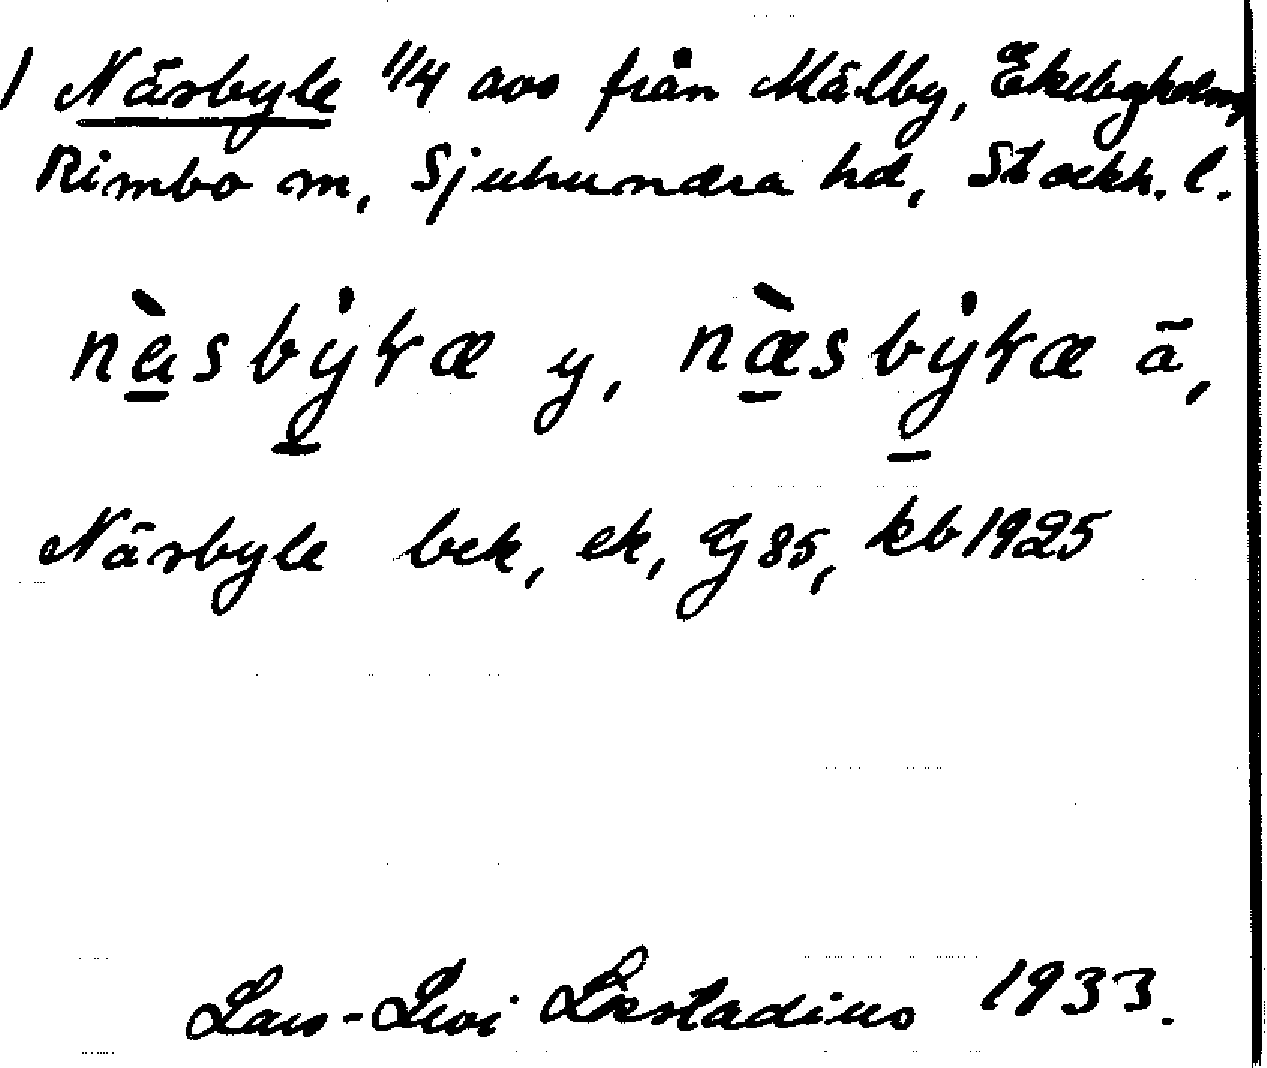 1 Närsbyle 1/4 avs från Målby, Ekebyholm,
Rimbo sn, Sjuhundra hd, Stockh. l.
nàsbyɫæ y, næ̀sbyɫæ ä,
Närsbyle bek, ek, 85, kb 1925
Lars-Levi Læstadius 1933.